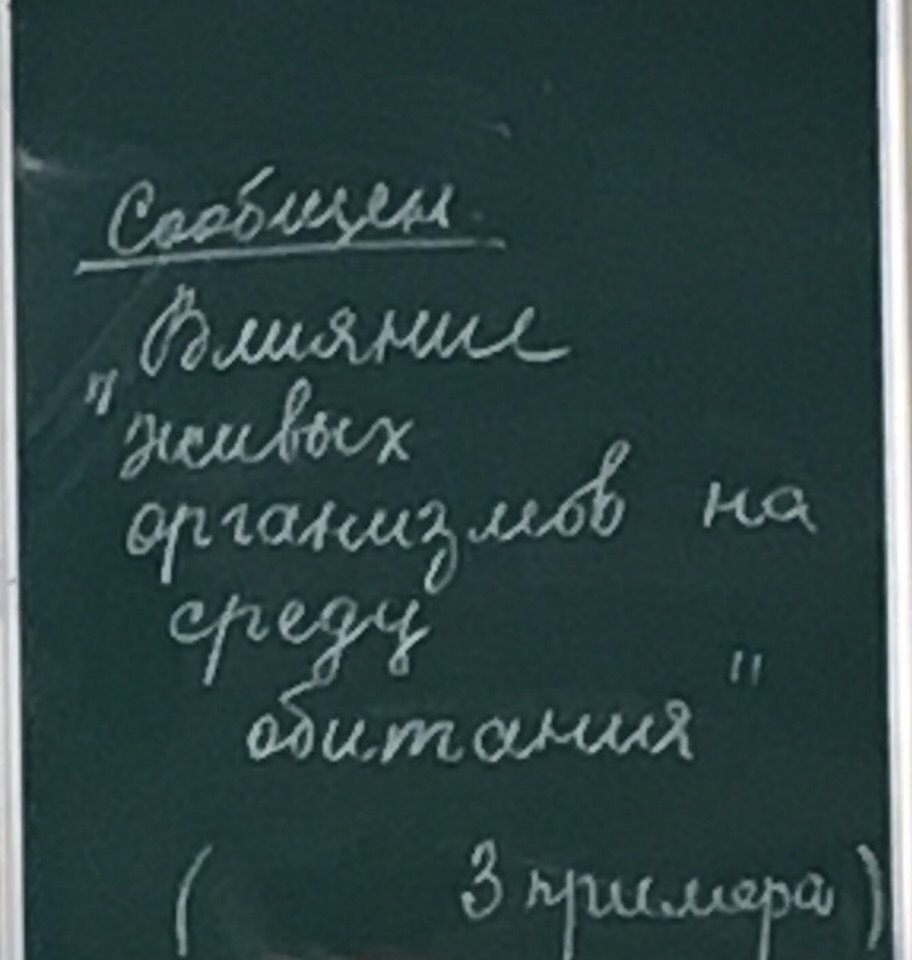 Сообщен.
"Влияние
живых
организмов на
среду
обитания"
( 3 примера)